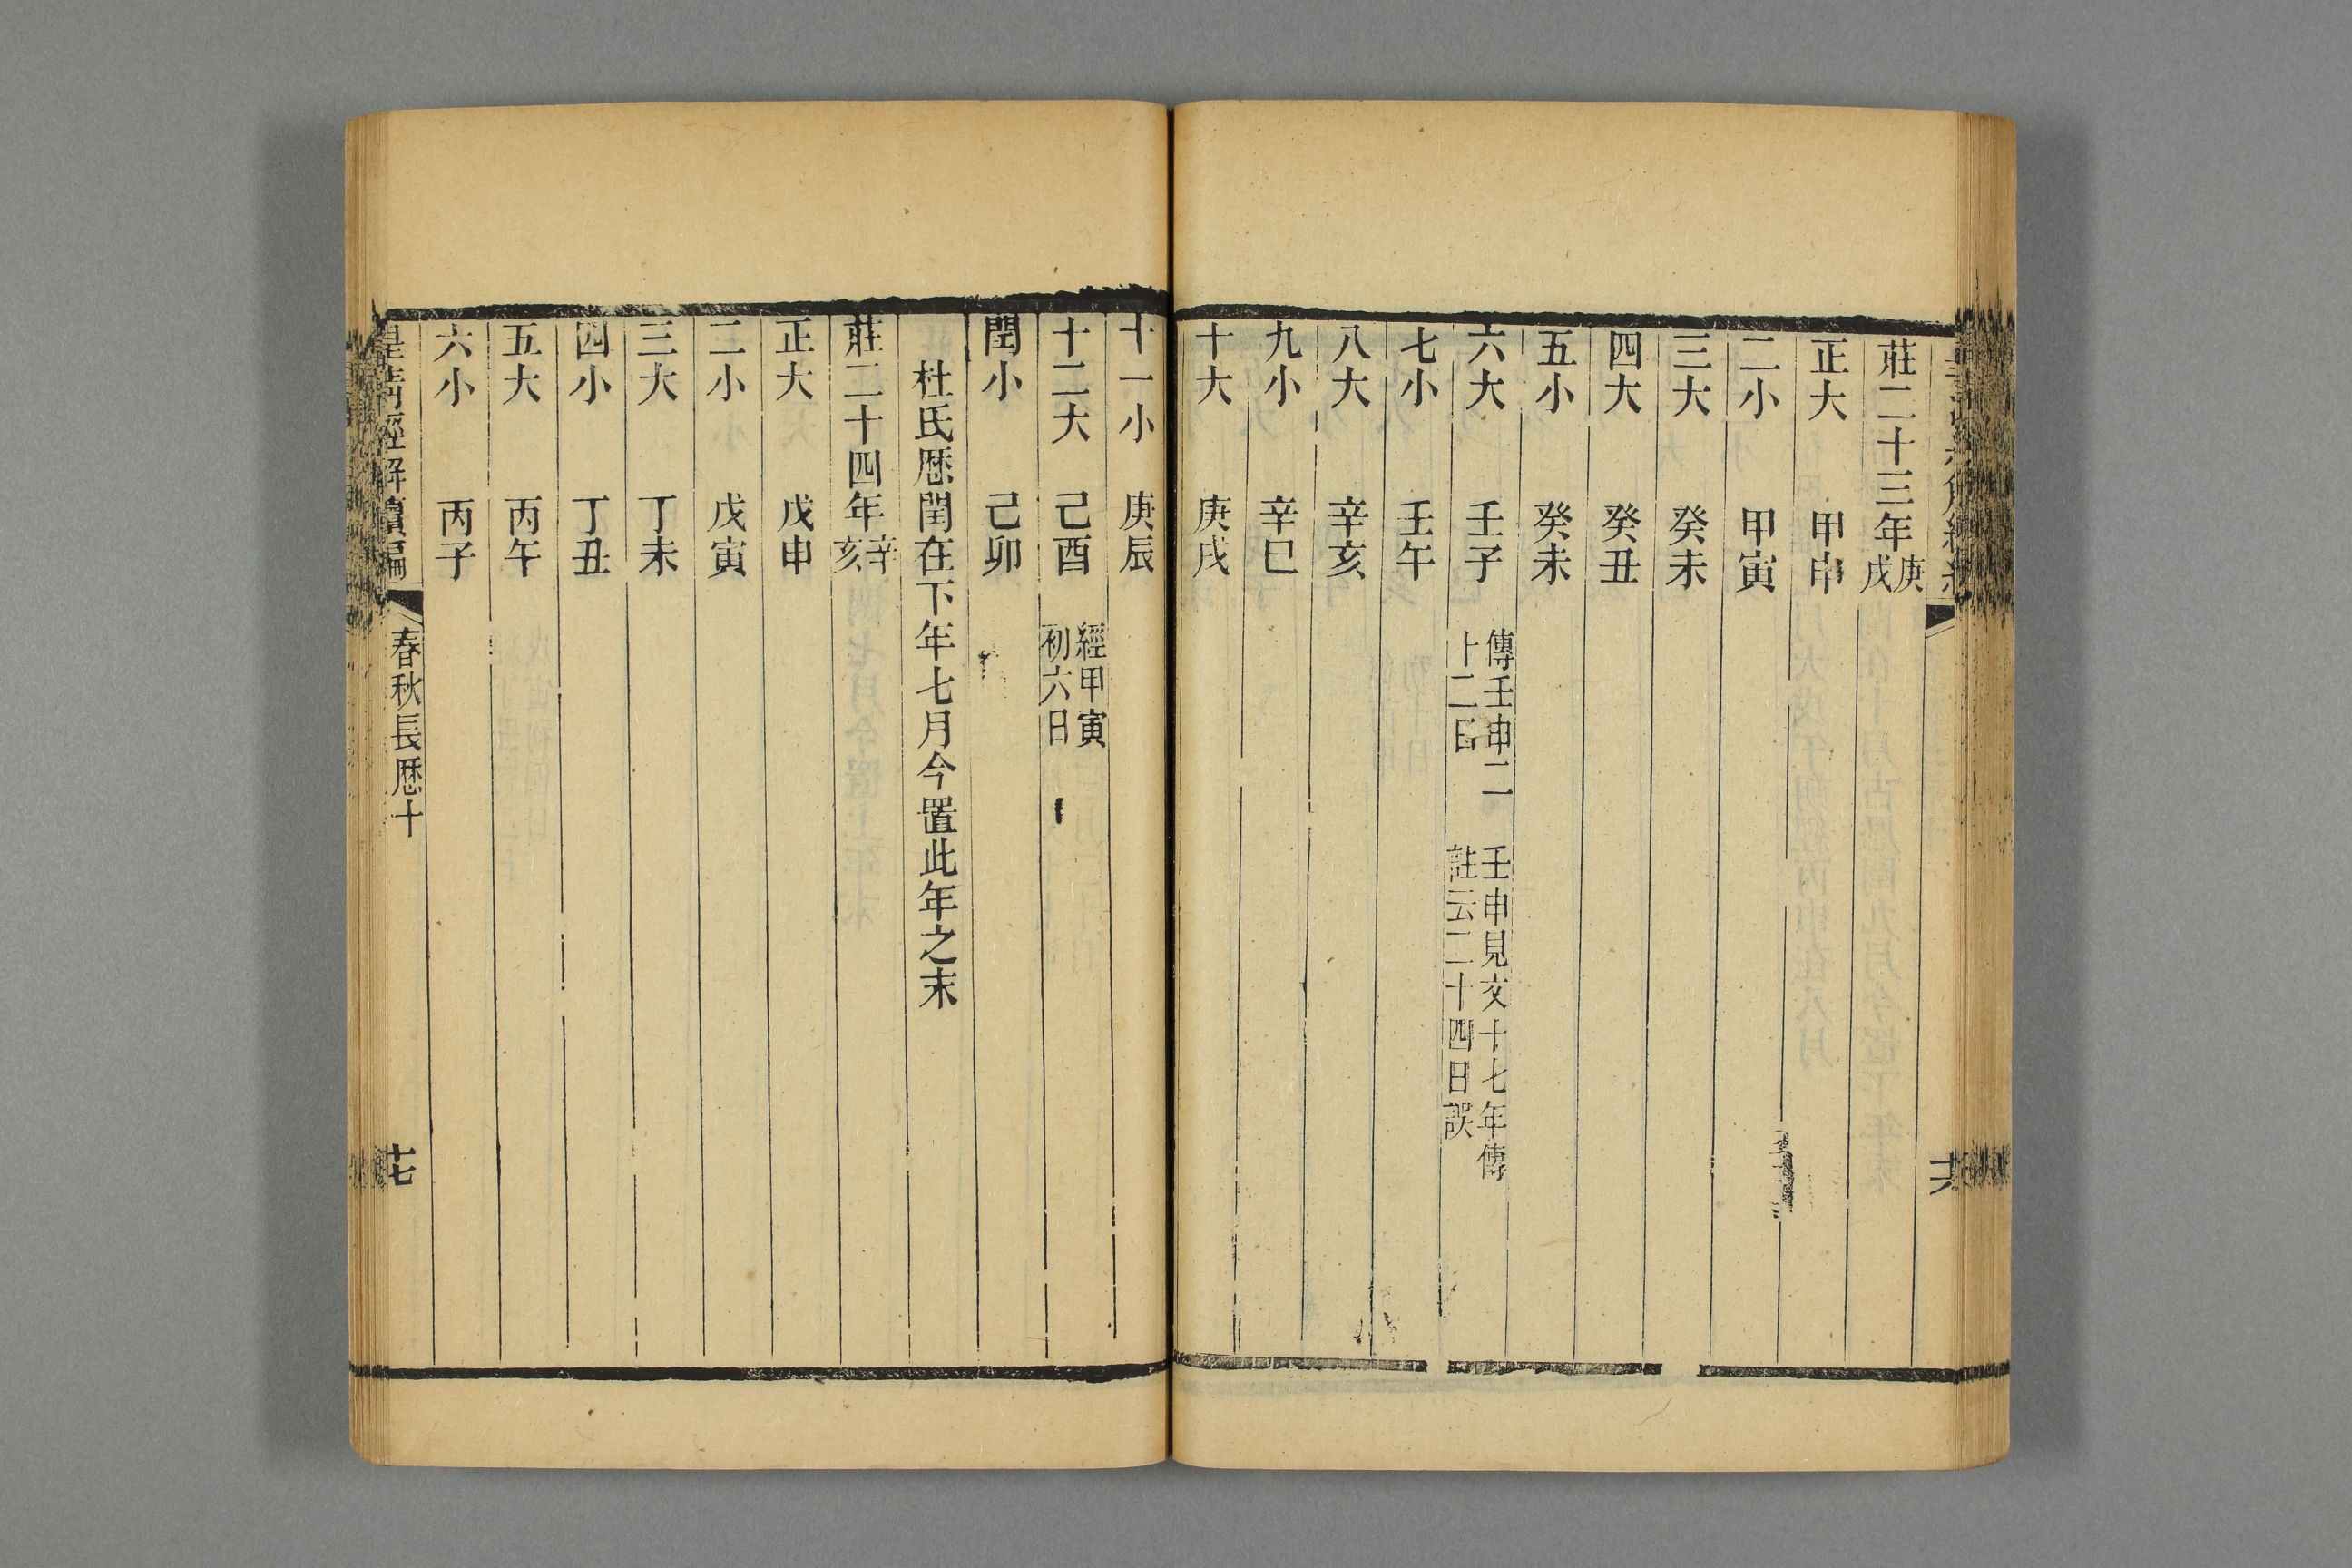 莊二十三年庚戌
正大 甲申
二小 甲寅
三大 癸未
四大 癸丑
五小 癸未
六大 壬子 傳壬申二十二日 壬申見文十七年傳註云二十四日誤
七小 壬午
八大 辛亥
九小 辛巳
十大 庚戌
十一小 庚辰
十二大 己酉 經甲寅初六日
閏小 己卯
杜氏厯閏在下年七月今置此年之末
莊二十四年辛亥
正大 戊申
二小 戊寅
三大 丁未
四小 丁丑
五大 丙午
六小 丙子
皇清經解續編 春秋長厯十 十七